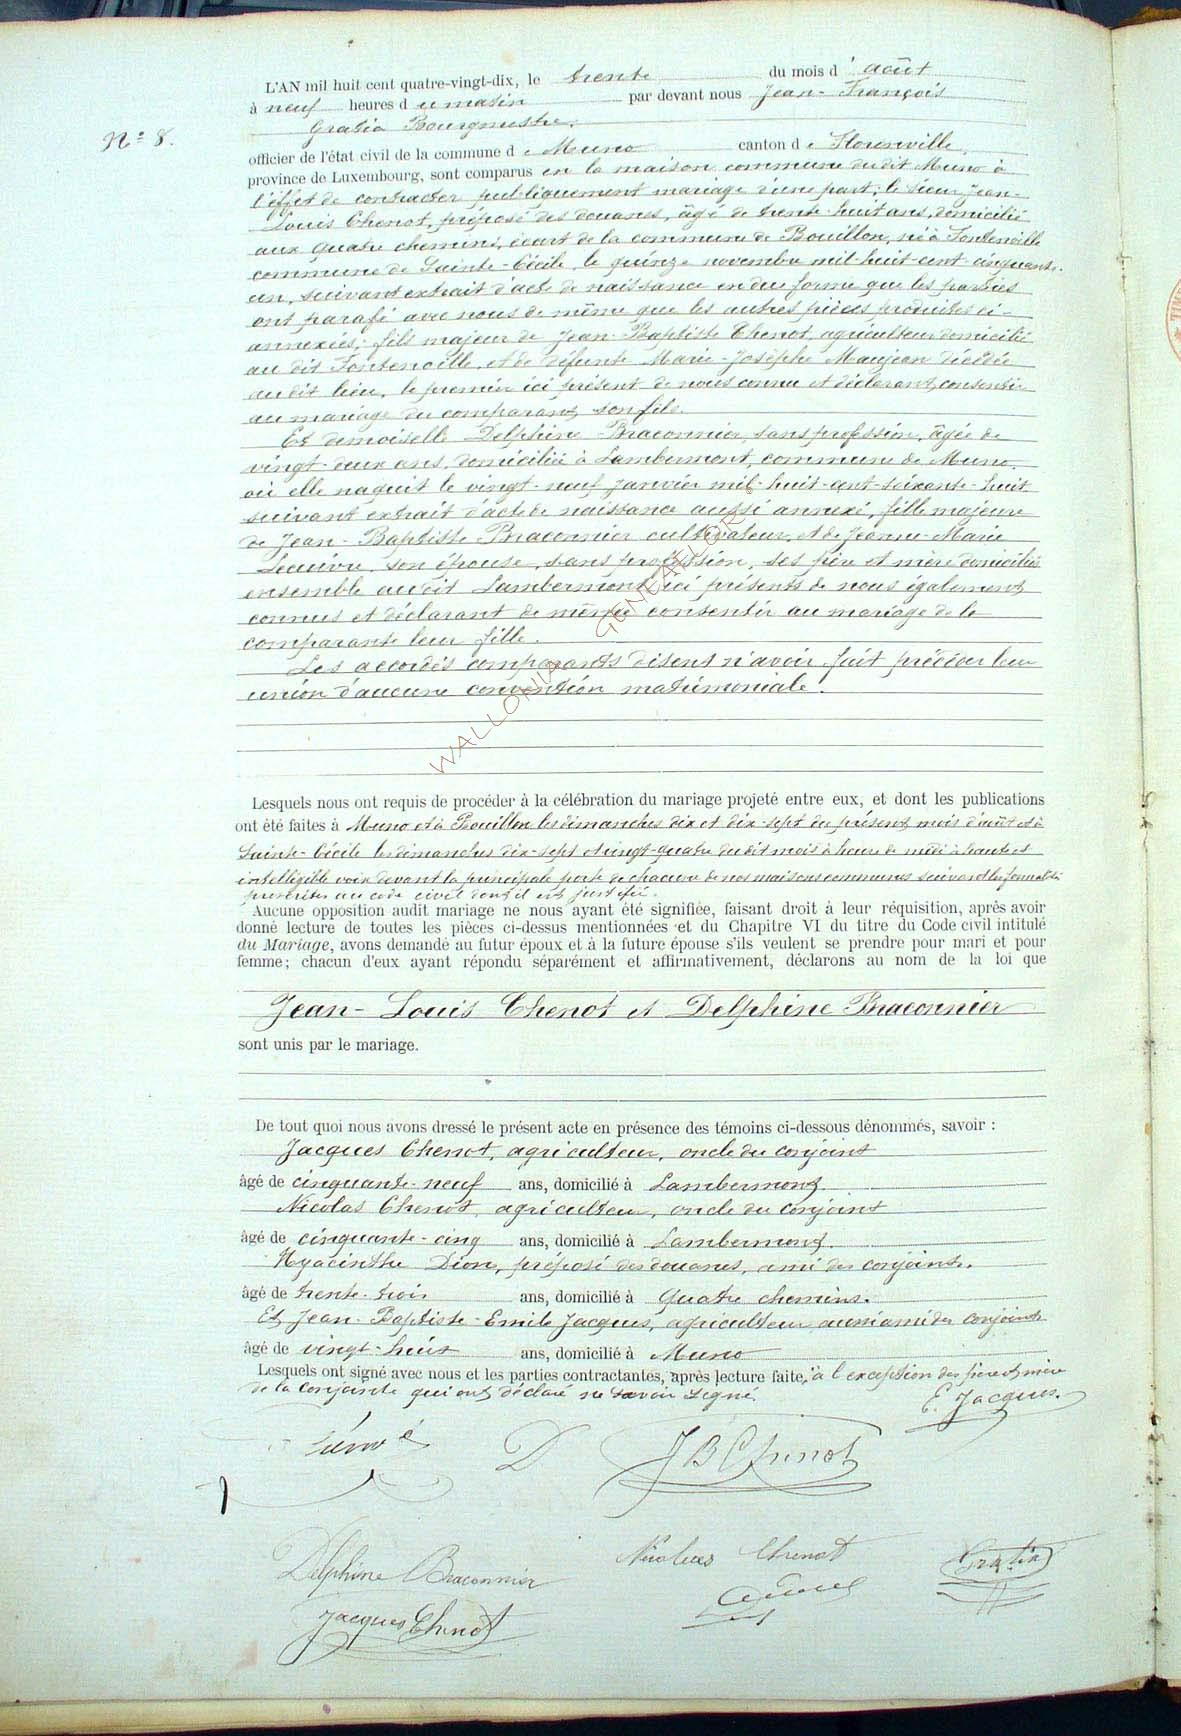 N° 8.
L'AN mil huit cent quatre-vingt-dix, le trente du mois d' août
à neuf heures d u matin par devant nous Jean-François
Gratia Bourgmestre.
officier de l'état civil de la commune d e Muno canton d e Florenville,
province de Luxembourg, sont comparus en la maison commune du dit Muno à
l'effet de contracter publiquement mariage d'une part; le sieur Jean-
Louis Chenot, préposé des douanes, âgé de trente-huit ans, domicilié
aux quatre chemins, écart de la commune de Bouillon, né à Fontenoille
commune de Sainte-Cécile, le quinze novembre mil-huit-cent-cinquante-
un, suivant extrait d'acte de naissance en due forme que les parties
ont parafé avec nous de même que les autres pièces produites ci-
annexées; fils majeur de Jean-Baptiste Chenot, agriculteur domicilié
au dit Fontenoille, et de défunte Marie-Josèphe Maujean décédée
au dit lieu, le premier ici présent de nous connu et déclarant consentir
au mariage du comparant son fils.
Et demoiselle Delphine Braconnier, sans profession, âgée de
vingt-deux ans, domiciliée à Lambermont, commune de Muno,
où elle naquit le vingt-neuf janvier mil-huit-cent-soixante-huit
suivant extrait d'acte de naissance aussi annexé, fille majeure
de Jean-Baptiste Braconnier cultivateur, et de Jeanne-Marie
Lecuivre, son épouse, sans profession, ses père et mère domiciliés
ensemble au dit Lambermont ici présents de nous également
connus et déclarant de même consentir au mariage de la
comparante leur fille.
Les accordés comparants disent n'avoir fait précéder leur
union d'aucune convention matrimoniale.
WALLONIA GENEALOGY
Lesquels nous ont requis de procéder à la célébration du mariage projeté entre eux, et dont les publications
ont été faites à Muno et à Bouillon les dimanches dix et dix-sept du présent mois d'août et à
Sainte-Cécile les dimanches dix-sept et vingt-quatre du dit mois à heure de midi à haute et
intelligible voix devant la principale porte de chacune de nos maisons communes suivant les formalités
prescrites au code civil dont il est justifié.
Aucune opposition audit mariage ne nous ayant été signifiée, faisant droit à leur réquisition, après avoir
donné lecture de toutes les pièces ci-dessus mentionnées et du Chapitre VI du titre du Code civil intitulé
du Mariage, avons demandé au futur époux et à la future épouse s'ils veulent se prendre pour mari et pour
femme; chacun d'eux ayant répondu séparément et affirmativement, déclarons au nom de la loi que
Jean-Louis Chenot et Delphine Braconnier
sont unis par le mariage.
De tout quoi nous avons dressé le présent acte en présence des témoins ci-dessous dénommés, savoir :
Jacques Chenot, agriculteur, oncle du conjoint
âgé de cinquante-neuf ans, domicilié à Lambermont.
Nicolas Chenot, agriculteur, oncle du conjoint
âgé de cinquante-cinq ans, domicilié à Lambermont.
Hyacinthe Dion, préposé des douanes, ami des conjoints.
âgé de trente-trois ans, domicilié à Quatre chemins.
Et Jean-Baptiste-Emile Jacques, agriculteur aussi ami des conjoints
âgé de vingt-huit ans, domicilié à Muno
Lesquels ont signé avec nous et les parties contractantes, après lecture faite, à l'exception des père et mère
de la conjointe qui ont déclaré ne savoir signé.
E. Jacques.
D
J B Chenot
Delphine Braconnier
Nicolas Chenot
Gratia
Jacques Chenot